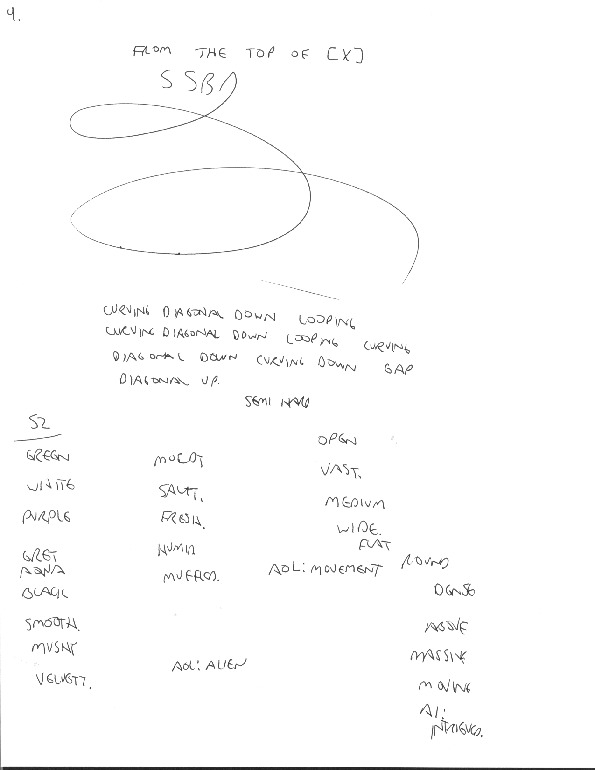 4.
FROM THE TOP OF [X]
S SB
CURVING DIAGONAL DOWN LOOPING
CURVING DIAGONAL DOWN LOOPING CURVING
DIAGONAL DOWN CURVING DOWN GAP
DIAGONAL UP.
SEMI HARD
S2
GREEN
WHITE
PURPLE
GREY
BLACK
SMOOTH.
VELVETY.
SALT.
FRESH.
HUMID
AOL: ALIEN
OPEN
VAST.
MEDIUM
WIDE.
FLAT
AOL: MOVEMENT
ROUND
DENSE
ABOVE
MASSIVE
MOVING
AI: